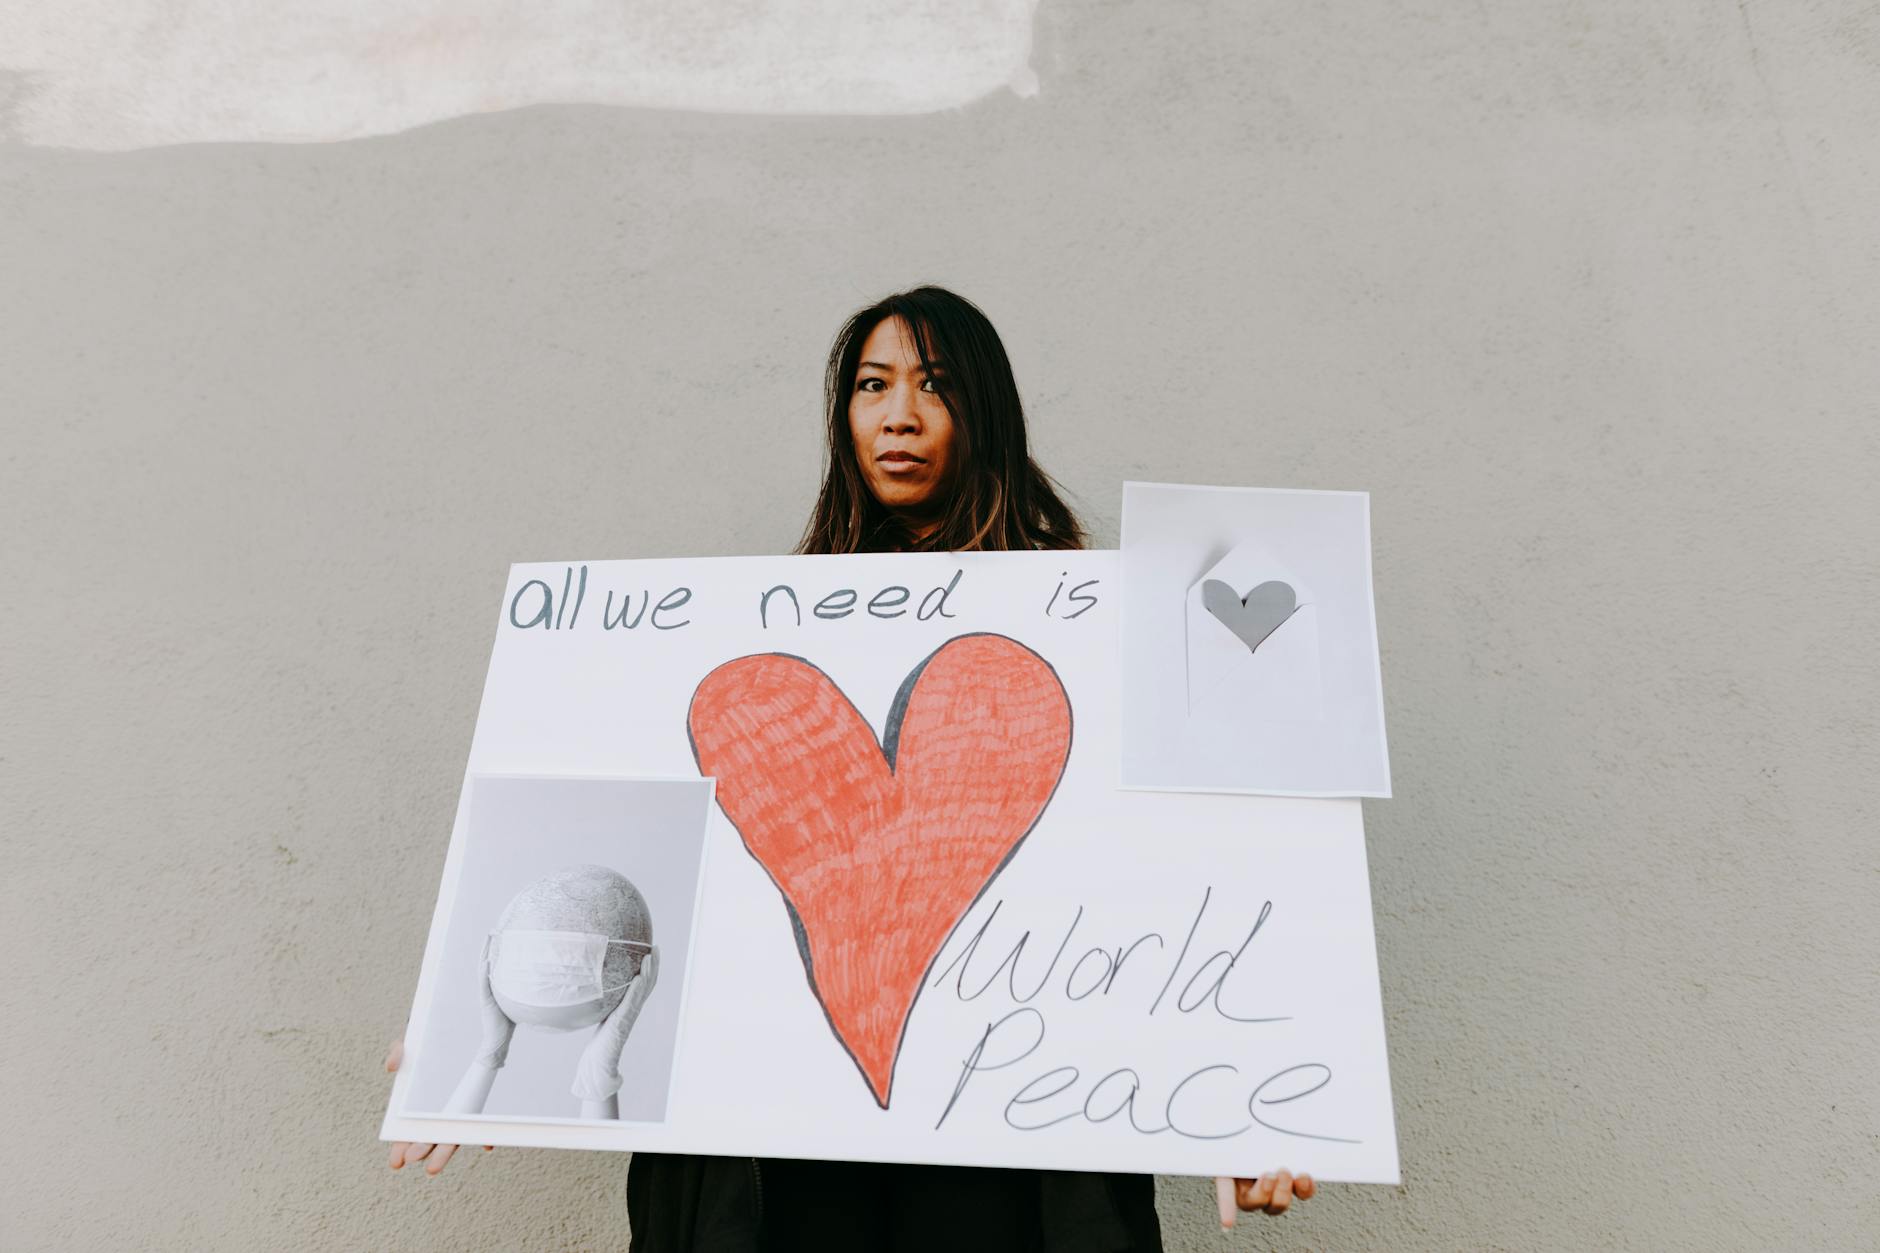 all we need is
World
Peace